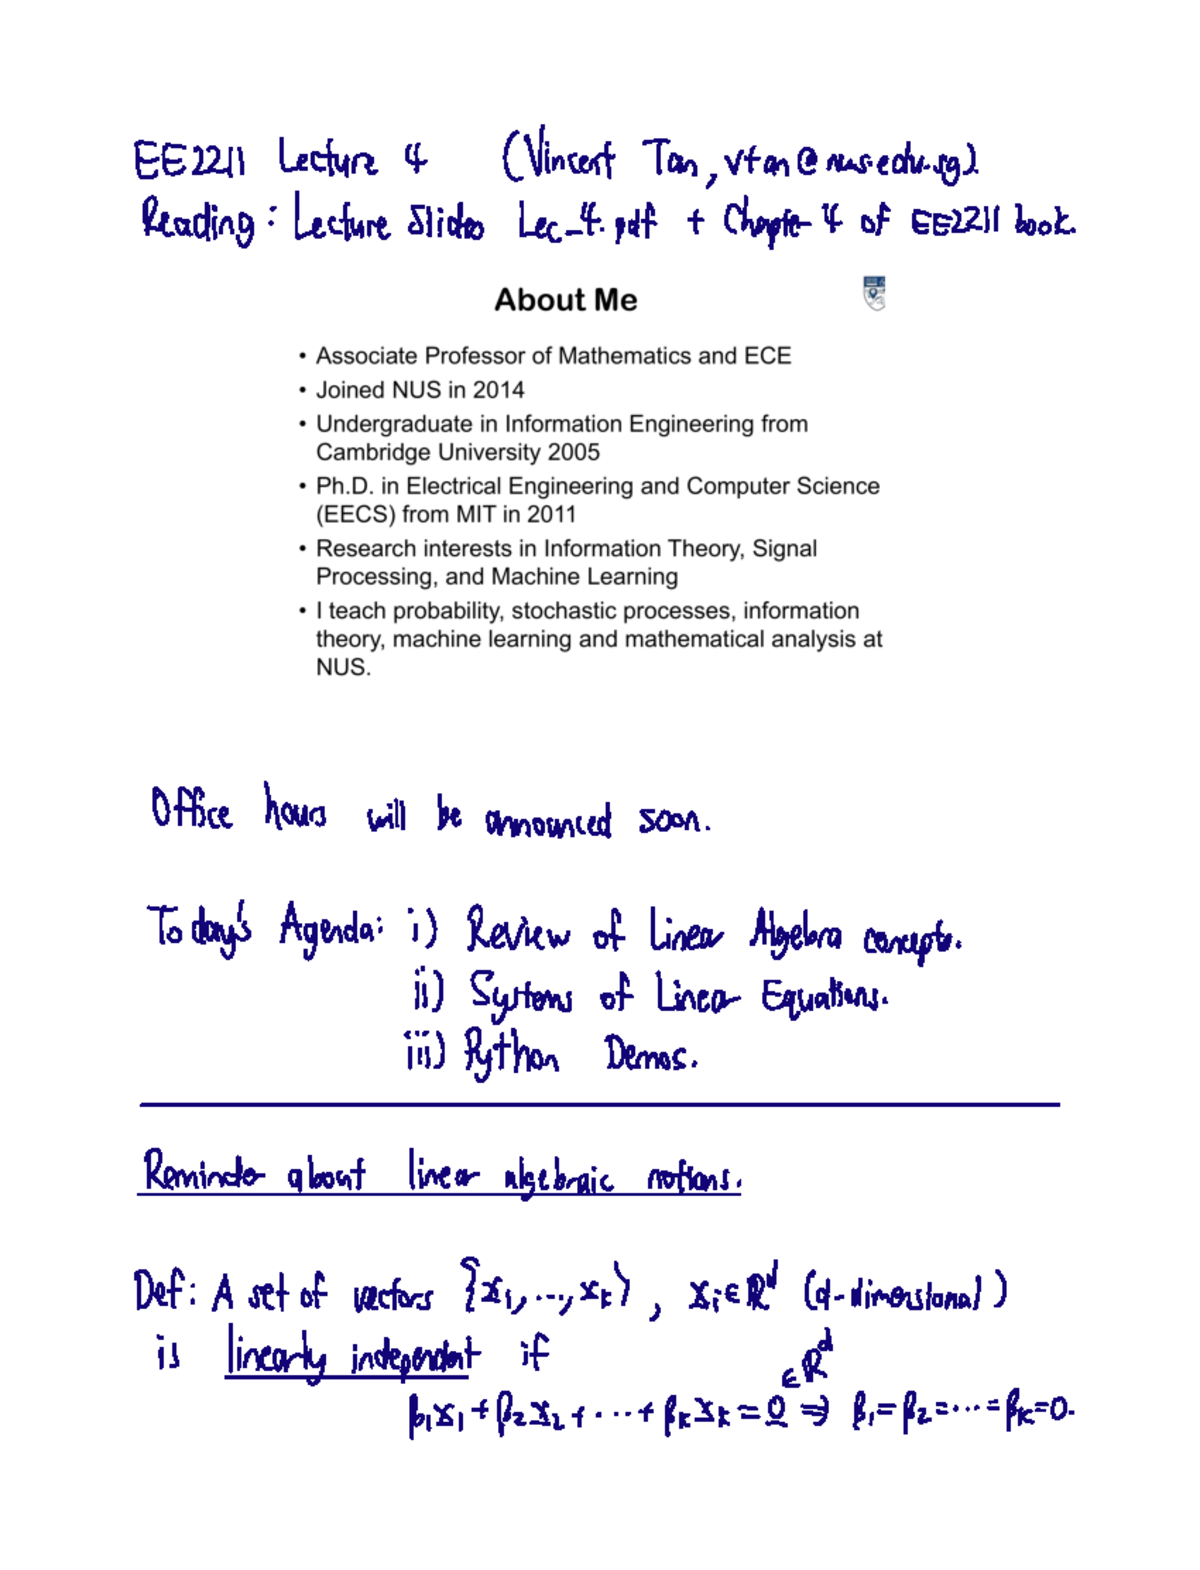 EE2211 Lecture 4 (Vincent Tan, vtan@nus.edu.sg)
Reading: Lecture Slides Lec_4.pdf + Chapter 4 of EE2211 book.
About Me
• Associate Professor of Mathematics and ECE
• Joined NUS in 2014
• Undergraduate in Information Engineering from
Cambridge University 2005
• Ph.D. in Electrical Engineering and Computer Science
(EECS) from MIT in 2011
• Research interests in Information Theory, Signal
Processing, and Machine Learning
• I teach probability, stochastic processes, information
theory, machine learning and mathematical analysis at
NUS.
Office hours will be announced soon.
Today's Agenda: i) Review of Linear Algebra concepts.
ii) Systems of Linear Equations.
iii) Python Demos.
Reminder about linear algebraic notions.
Def: A set of vectors {x₁, ..., xₖ}, xᵢ ∈ ℝᵈ (d-dimensional)
is linearly independent if
β₁x₁ + β₂x₂ + ... + βₖxₖ = 0 ∈ ℝᵈ ⇒ β₁ = β₂ = ... = βₖ = 0.